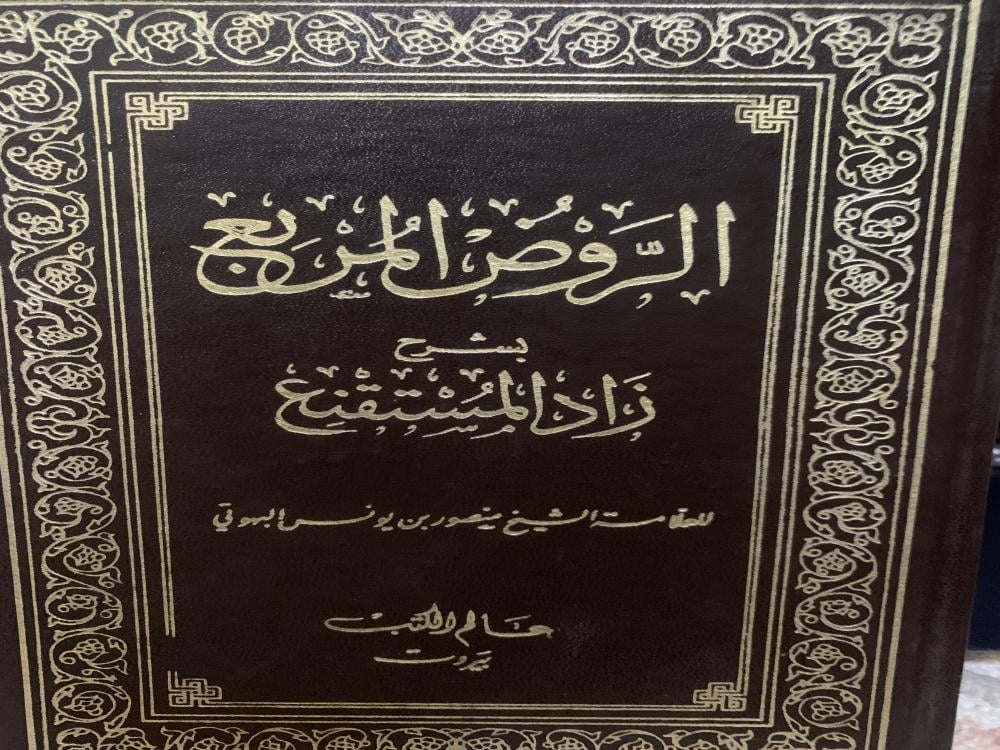 الرَّوْضُ المُرْبِع
بشرح
زَاد المُسْتَقْنِع
للعلامة الشيخ منصور بن يونس البهوتي
عالم الكتب
بيروت